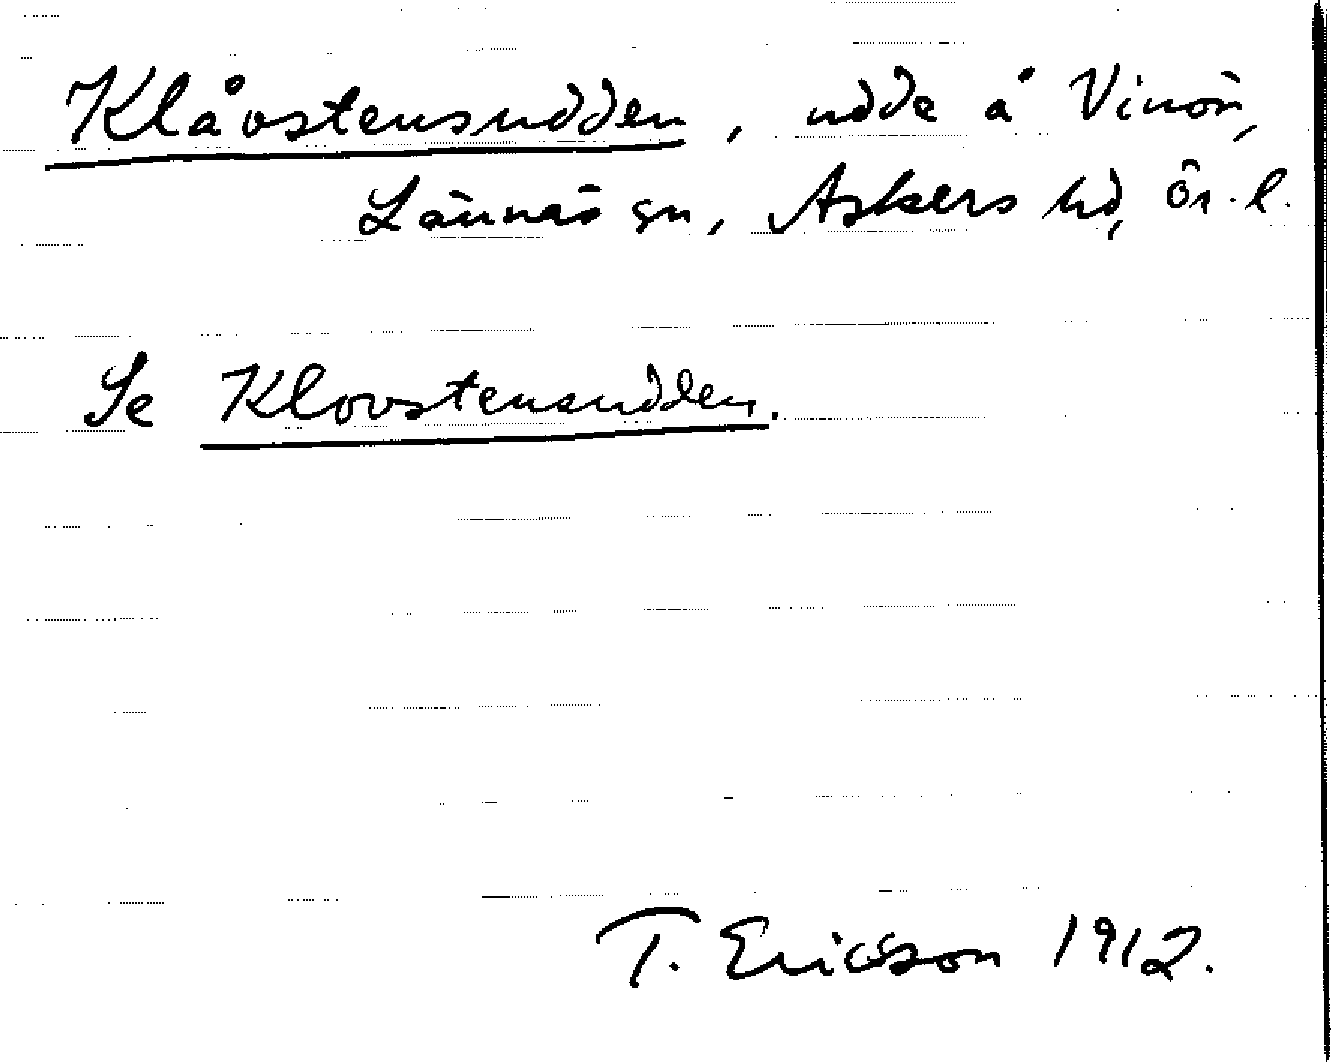 Klåvstensudden, udde å Vinön,
Lännäs sn, Askers hd, Ör. l.
Se Klovstensudden.
T. Ericsson 1912.